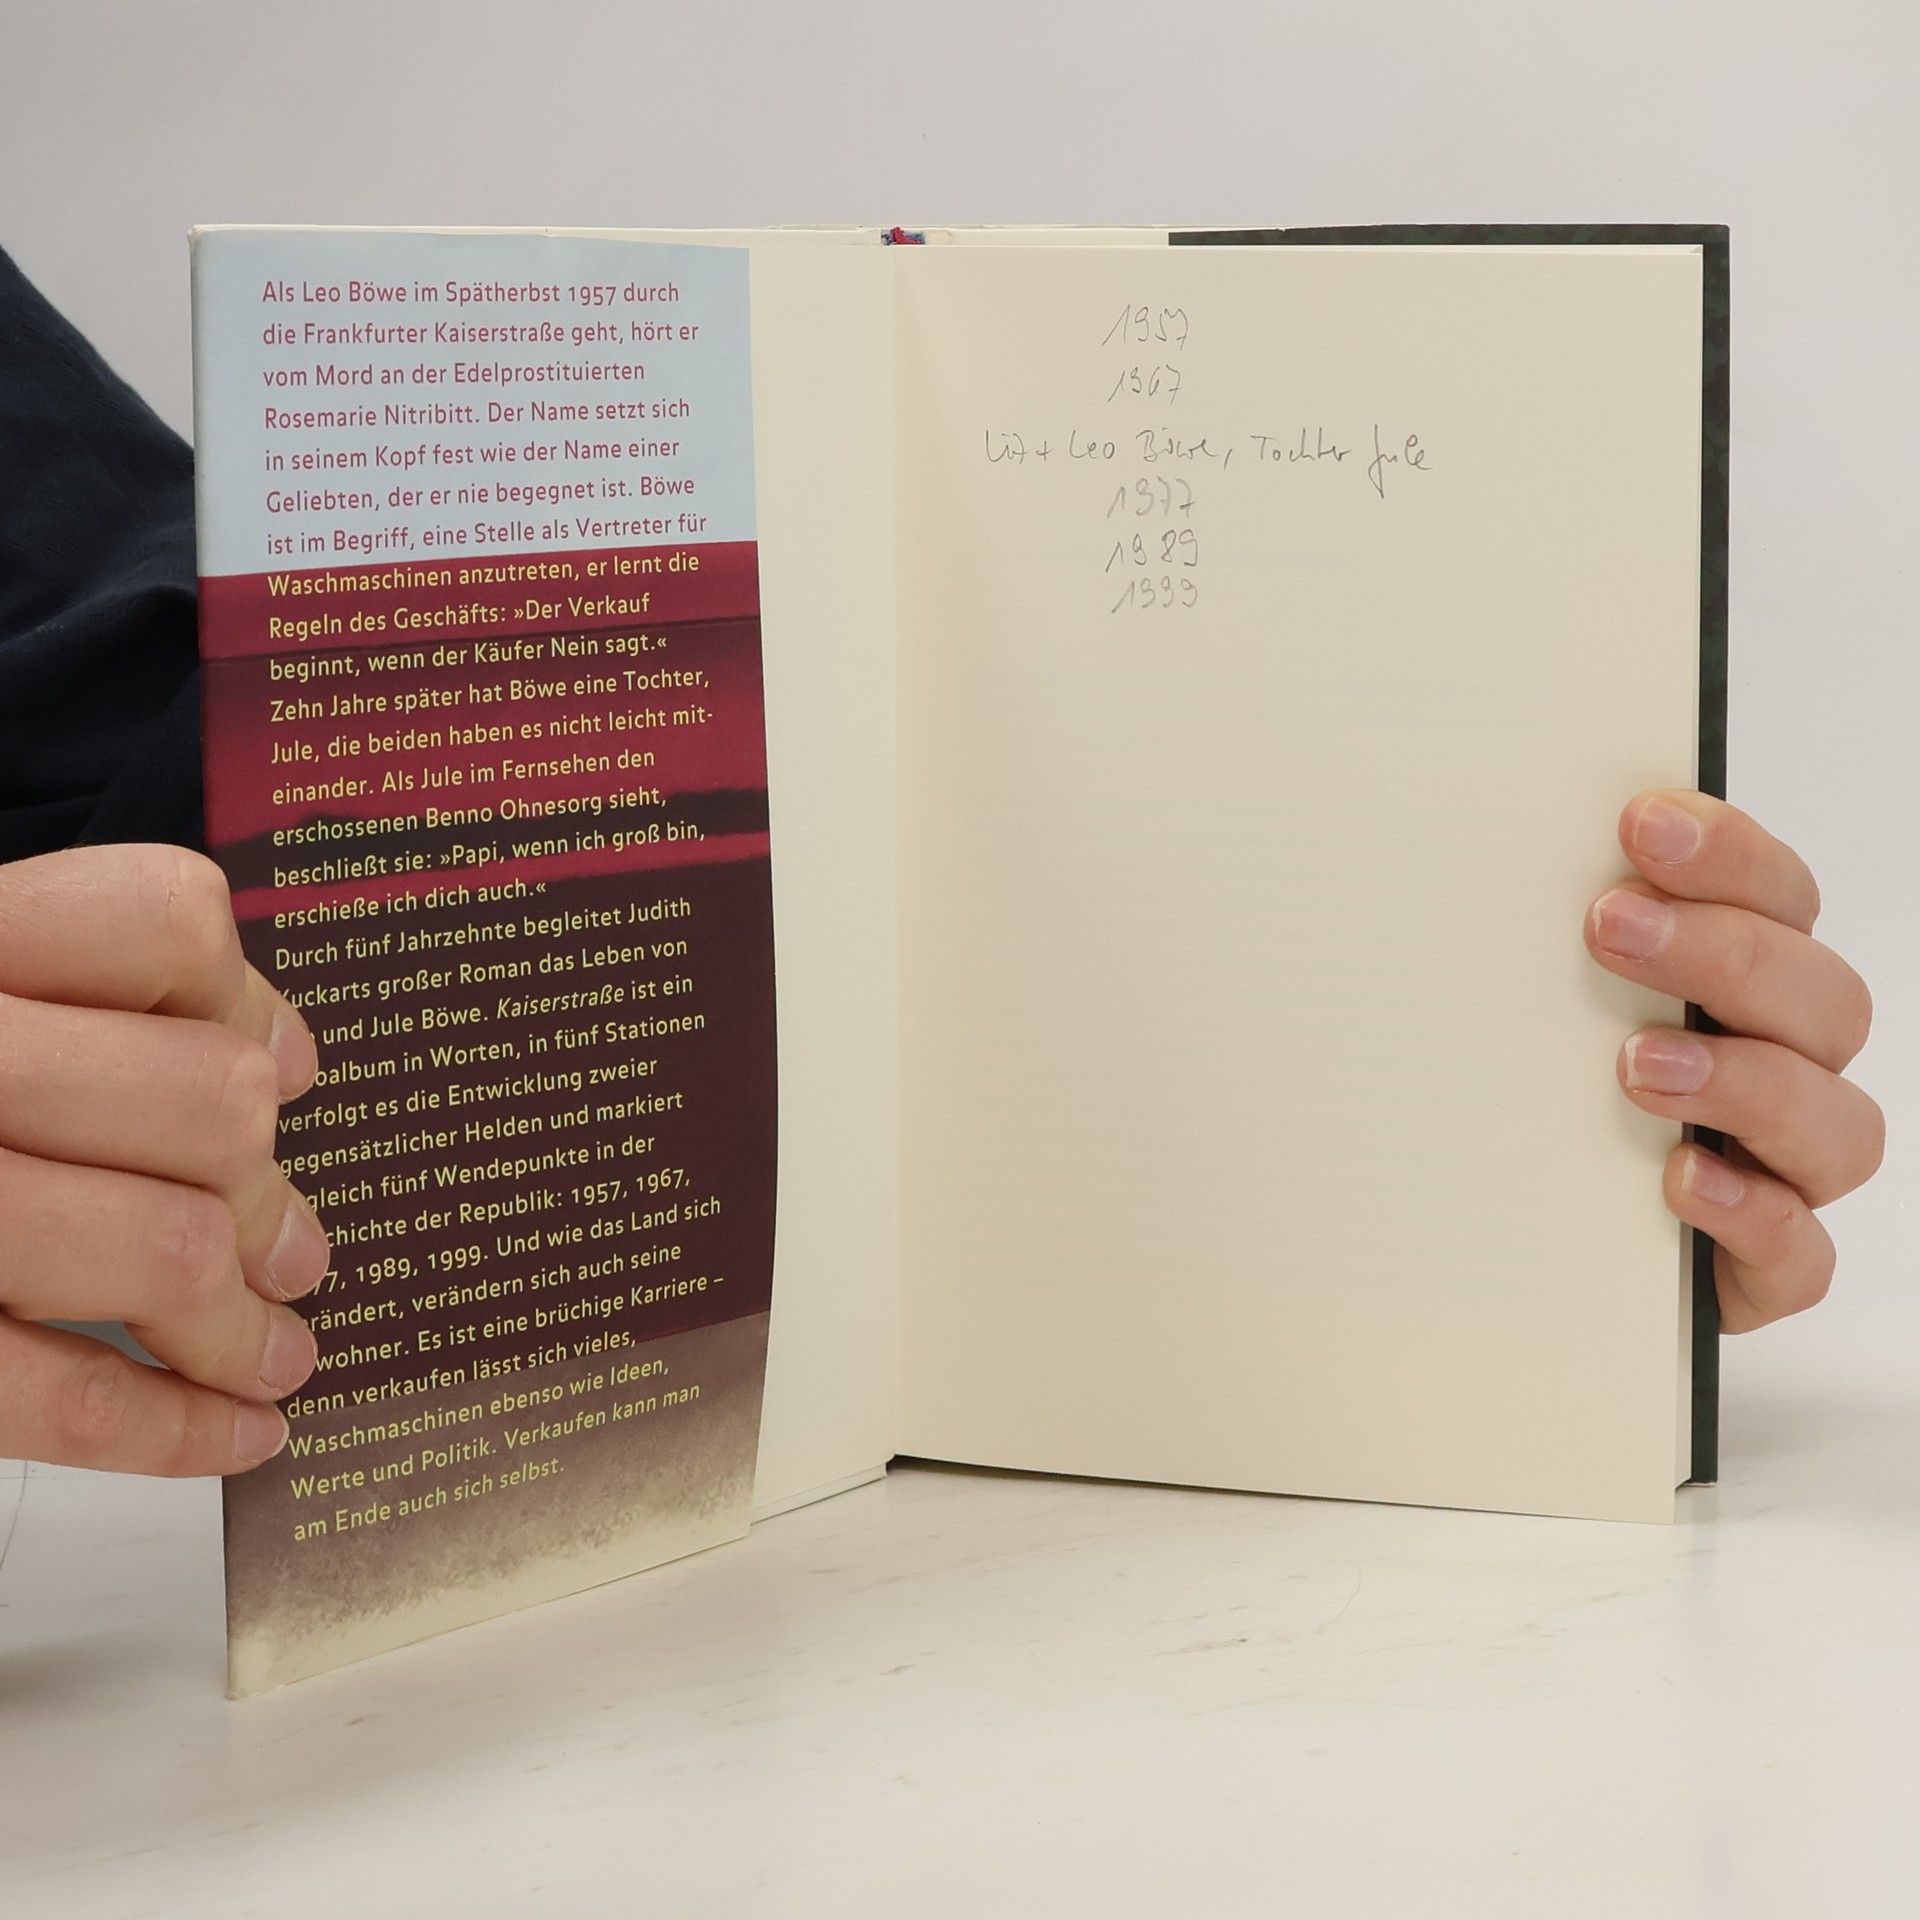 Als Leo Böwe im Spätherbst 1957 durch
die Frankfurter Kaiserstraße geht, hört er
vom Mord an der Edelprostituierten
Rosemarie Nitribitt. Der Name setzt sich
in seinem Kopf fest wie der Name einer
Geliebten, der er nie begegnet ist. Böwe
ist im Begriff, eine Stelle als Vertreter für
Waschmaschinen anzutreten, er lernt die
Regeln des Geschäfts: »Der Verkauf
beginnt, wenn der Käufer Nein sagt.«
Zehn Jahre später hat Böwe eine Tochter,
Jule, die beiden haben es nicht leicht mit-
einander. Als Jule im Fernsehen den
erschossenen Benno Ohnesorg sieht,
beschließt sie: »Papi, wenn ich groß bin,
erschieße ich dich auch.«
Durch fünf Jahrzehnte begleitet Judith
Kuckarts großer Roman das Leben von
und Jule Böwe. Kaiserstraße ist ein
oalbum in Worten, in fünf Stationen
verfolgt es die Entwicklung zweier
gegensätzlicher Helden und markiert
gleich fünf Wendepunkte in der
chichte der Republik: 1957, 1967,
77, 1989, 1999. Und wie das Land sich
rändert, verändern sich auch seine
wohner. Es ist eine brüchige Karriere –
denn verkaufen lässt sich vieles,
Waschmaschinen ebenso wie Ideen,
Werte und Politik. Verkaufen kann man
am Ende auch sich selbst.
1957
1967
+ Leo Böwe, Tochter Jule
1977
1989
1999